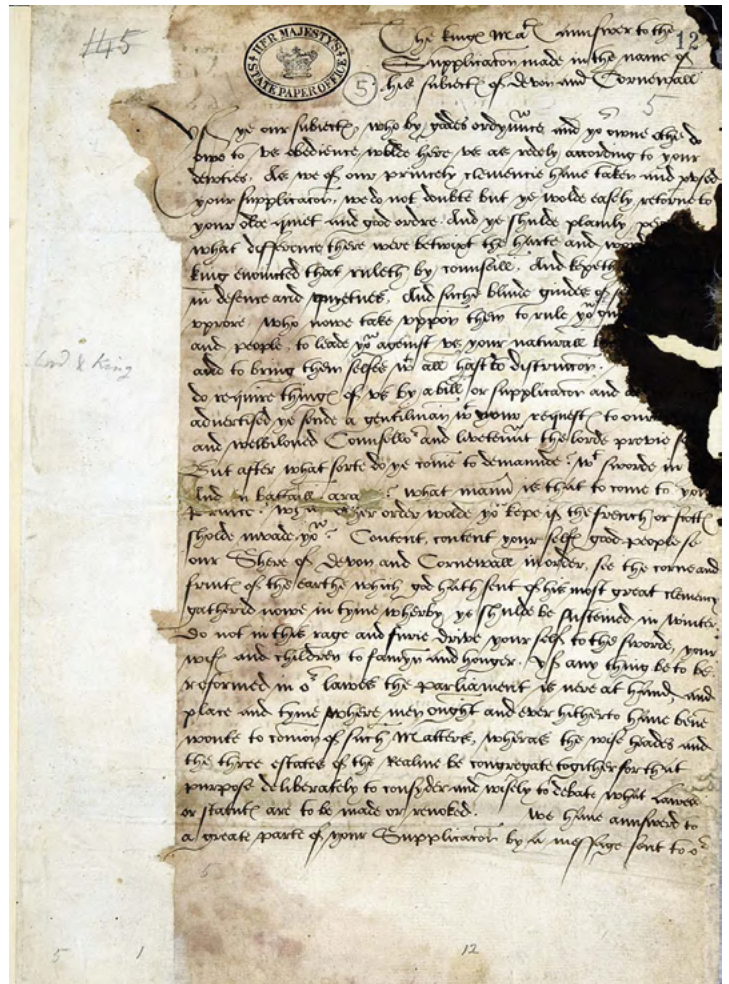 145
HER MAJESTY'S STATE PAPER OFFICE
12
5
The kinges Matȩ aunswer to the
Supplicaton made in the name of
his subiectȩ of devon and Cornewall
5
Yf ye our subiectȩ, who by godes ordynnce, and yor owne othe do
owe to vs obedience, wolde here vs as redely according to your
dewties, As we of our princely clemencie haue taken and
your supplicaton, we do not doubte but ye wolde easely retorne to
your olde quiet and good ordre. And ye shulde plainly
what difference there were betwixt the harte and
king enoincted that ruleth by counsaill, And kepeth
in defence and quyetnes, And suche blinde guides of
vprore who nowe take vppon them to rule yow
and people, to leade yow against vs your naturall
Lord & King
and to bring them selfes wt all hast to distructon.
do require thingȩ of vs by a bill, or supplicaton and
aduertised ye sende a gentilman wt your requestȩ to our
and welbiloued Counsellor and livetennt the lorde privie
But after what sorte do ye come to demaunde? wt sworde in
And in battaill ara ? what mann is that to come to yor
Prince? other order wolde yow kepe if the french or scottȩ
sholde invade yow? Content, content your selfȩ good people se
our Shere of Devon and Cornewall in order, see the corne and
fruitȩ of the earthe which god hath sent of his most great clemency
gatherid nowe in tyme wherby ye shulde be susteined in winter
Do not in this rage and furie drive your self to the sworde, your
wifȩ and children to famyn and honger. Yf any thing be to be
reformed in or lawes the parliament is nere at hand, and
place and tyme where men ought and ever hitherto haue bene
wonte to comon of such Matters, wheras the wise heades and
the three estates of the Realme be congregate togither for that
purpose deliberately to consyder and wisely to debate what lawes
or statutȩ are to be made or revoked. We haue aunswerd to
a great parte of your Supplicaton by a message sent to or
5 1 12